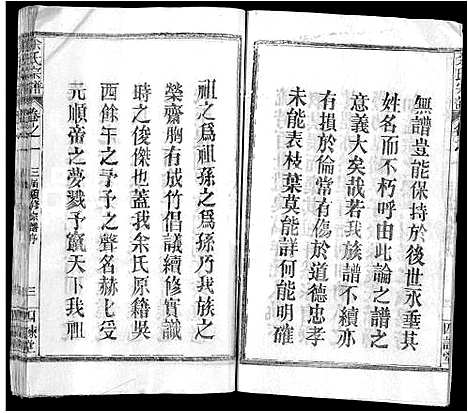 無譜豈能保持於後世永垂其
姓名而不朽呼由此論之譜之
意義大矣哉若我族譜不續亦
有損於倫常有傷於道德忠孝
未能表枝葉莫能詳何能明確
祖之為祖孫之為孫乃我族之
榮齋胸有放竹倡議續修實識
時之俊傑也蓋我余氏原籍吳
西餘干之予予之聲名赫匕受
元順帝之夢戮予竄天下我祖
余氏宗譜
卷之一
三屆續修宗譜序
三
四諫堂